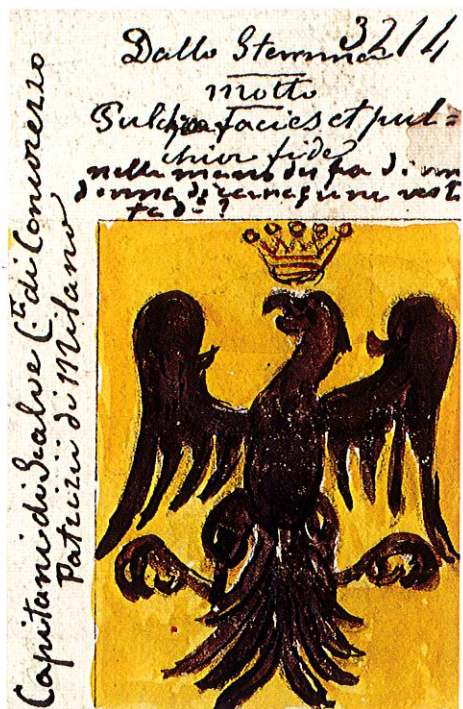 3214
Dallo Stemma
motto
Pulchra facies et pul=
chior fides
nella mano di
donna di carnagione vesti
ta di ?
Capitani di Scalve C.ti di Concorezzo
Patrizii di Milano